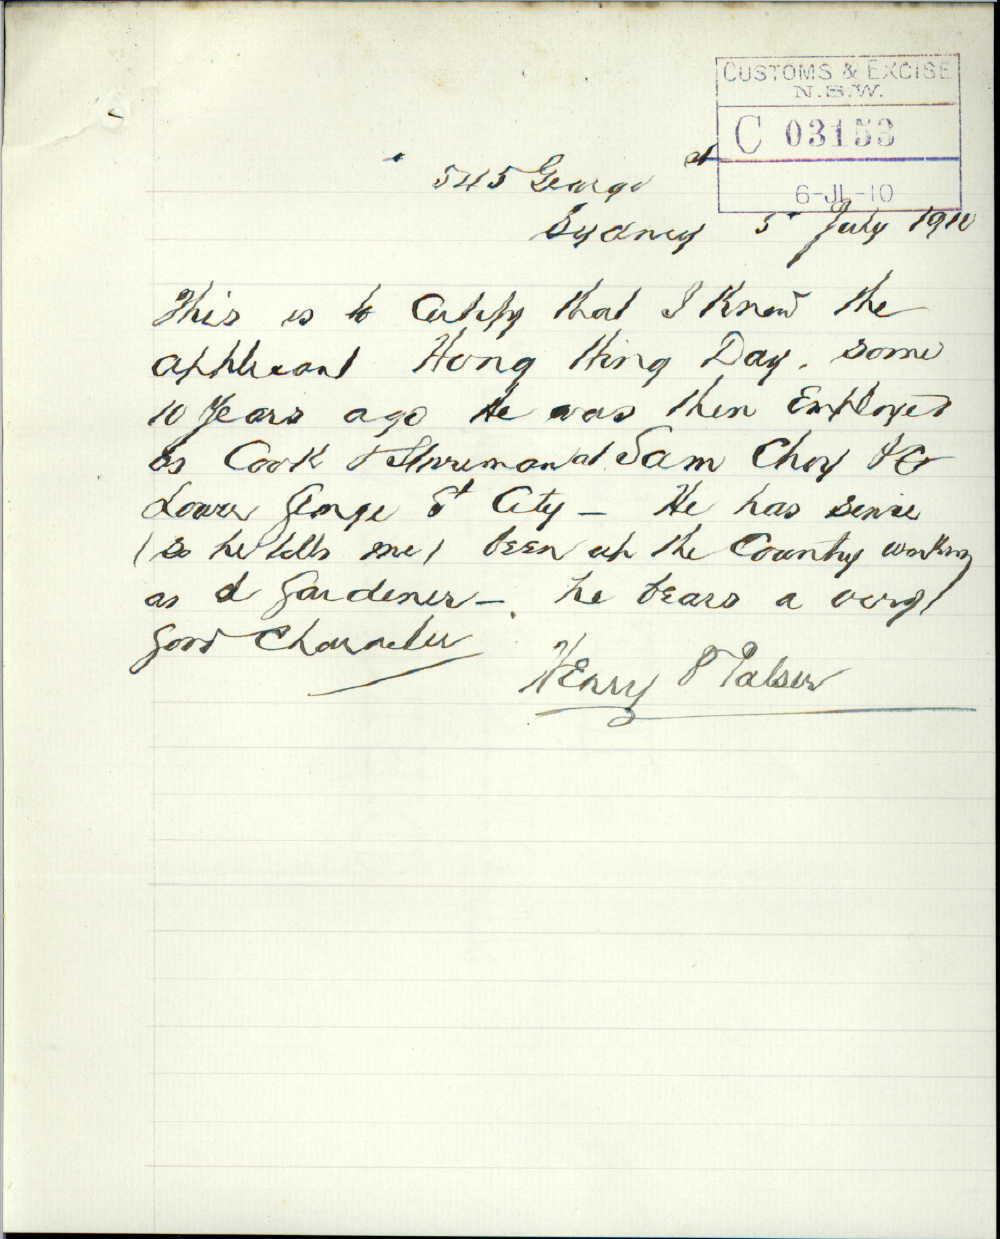 CUSTOMS & EXCISE
N.S.W.
C 03153
6-JL-10
545 George St
Sydney 5 July 1910
This is to Certify that I Knew the
applicant Hong Hing Day. some
10 years ago He was then Employed
as Cook & Storeman at Sam Choy & Co
Lower George St City - He has sense
(so he tells me) been up the Country working
as a Gardener - he bears a very
good Character
Henry